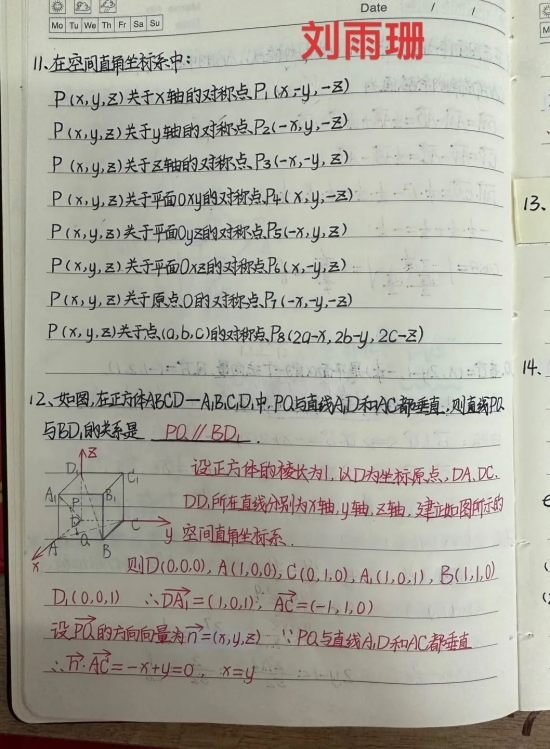 Date / /
Mo Tu We Th Fr Sa Su
刘雨珊
11、在空间直角坐标系中：
P(x,y,z)关于x轴的对称点P₁(x,-y,-z)
P(x,y,z)关于y轴的对称点P₂(-x,y,-z)
P(x,y,z)关于z轴的对称点P₃(-x,-y,z)
P(x,y,z)关于平面Oxy的对称点P₄(x,y,-z)
P(x,y,z)关于平面Oyz的对称点P₅(-x,y,z)
P(x,y,z)关于平面Oxz的对称点P₆(x,-y,z)
P(x,y,z)关于原点O的对称点P₇(-x,-y,-z)
P(x,y,z)关于点(a,b,c)的对称点P₈(2a-x,2b-y,2c-z)
12、如图,在正方体ABCD—A₁B₁C₁D₁中,PQ与直线A₁D和AC都垂直,则直线PQ
与BD₁的关系是 PQ∥BD₁ .
z
D₁ C₁
A₁ B₁
P
D C y
A Q B
x
设正方体的棱长为1,以D为坐标原点,DA、DC、
DD₁所在直线分别为x轴,y轴,z轴,建立如图所示的
空间直角坐标系.
则D(0,0,0),A(1,0,0),C(0,1,0),A₁(1,0,1),B(1,1,0)
D₁(0,0,1) ∴DA₁→=(1,0,1), AC→=(-1,1,0)
设PQ→的方向向量为n→=(x,y,z) ∵PQ与直线A₁D和AC都垂直
∴n→·AC→=-x+y=0, x=y
13、
14、